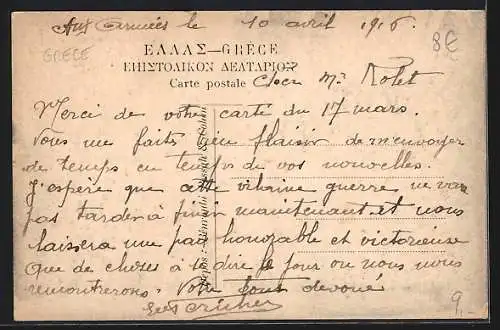 Aux Armées le 10 avril 1916.
8€
GRECE
ΕΛΛΑΣ—GRÈCE
ΕΠΙΣΤΟΛΙΚΟΝ ΔΕΛΤΑΡΙΟΝ
Carte postale
Cher Mr Rolet
Merci de votre carte du 17 mars.
Vous me faites bien plaisir de m'envoyer
de temps en temps de vos nouvelles.
J'espère que cette vilaine guerre ne va
pas tarder à finir maintenant et nous
laissera une paix honorable et victorieuse
Que de choses à se dire le jour ou nous nous
rencontrerons. Votre tout dévoué
9.-